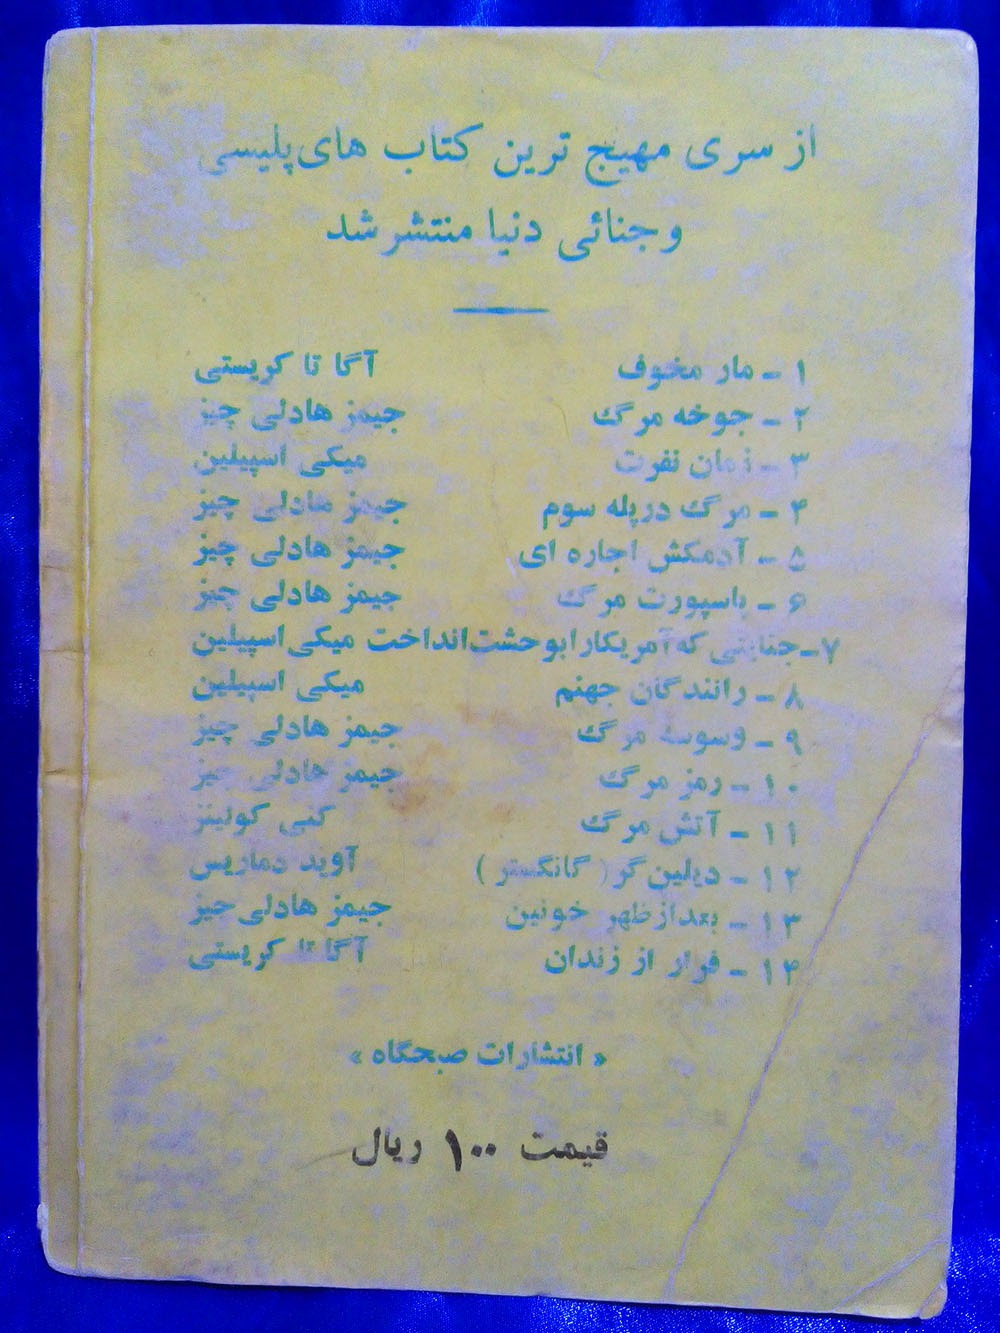 از سری مهیج ترین کتاب های پلیسی
و جنائی دنیا منتشر شد
۱ - مار مخوف آگا تا کریستی
۲ - جوخه مرگ جیمز هادلی چیز
۳ - زمان نفرت میکی اسپیلین
۴ - مرگ در پله سوم جیمز هادلی چیز
۵ - آدمکش اجاره ای جیمز هادلی چیز
۶ - پاسپورت مرگ جیمز هادلی چیز
۷- جنایتی که آمریکارا بوحشت انداخت میکی اسپیلین
۸ - رانندگان جهنم میکی اسپیلین
۹ - وسوسهٔ مرگ جیمز هادلی چیز
۱۰ - رمز مرگ جیمز هادلی چیز
۱۱ - آتش مرگ کنی کولینز
۱۲ - دیلین گر ( گانگستر ) آوید دماریس
۱۳ - بعد از ظهر خونین جیمز هادلی چیز
۱۴ - فرار از زندان آگا تا کریستی
« انتشارات صبحگاه »
قیمت ۱۰۰ ریال